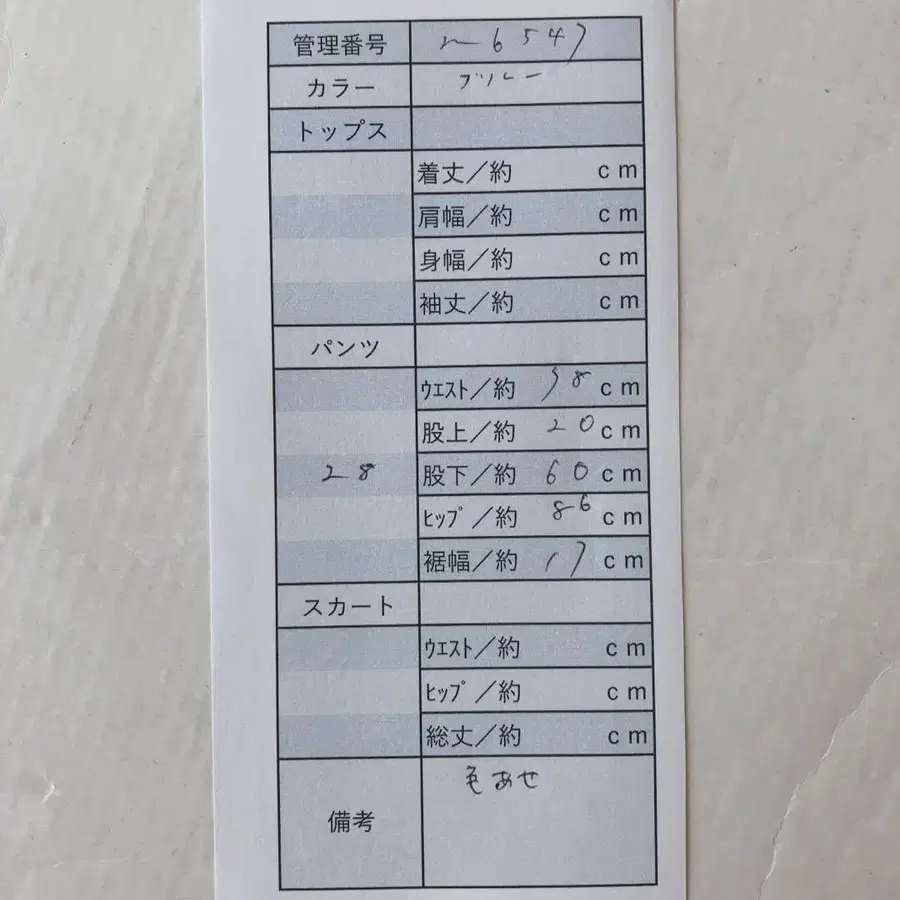 管理番号 m6547
カラー ブルー
トップス
着丈／約 cm
肩幅／約 cm
身幅／約 cm
袖丈／約 cm
パンツ
28
ｳｴｽﾄ／約 78 cm
股上／約 20 cm
股下／約 60 cm
ﾋｯﾌﾟ／約 86 cm
裾幅／約 17 cm
スカート
ｳｴｽﾄ／約 cm
ﾋｯﾌﾟ／約 cm
総丈／約 cm
備考 色あせ